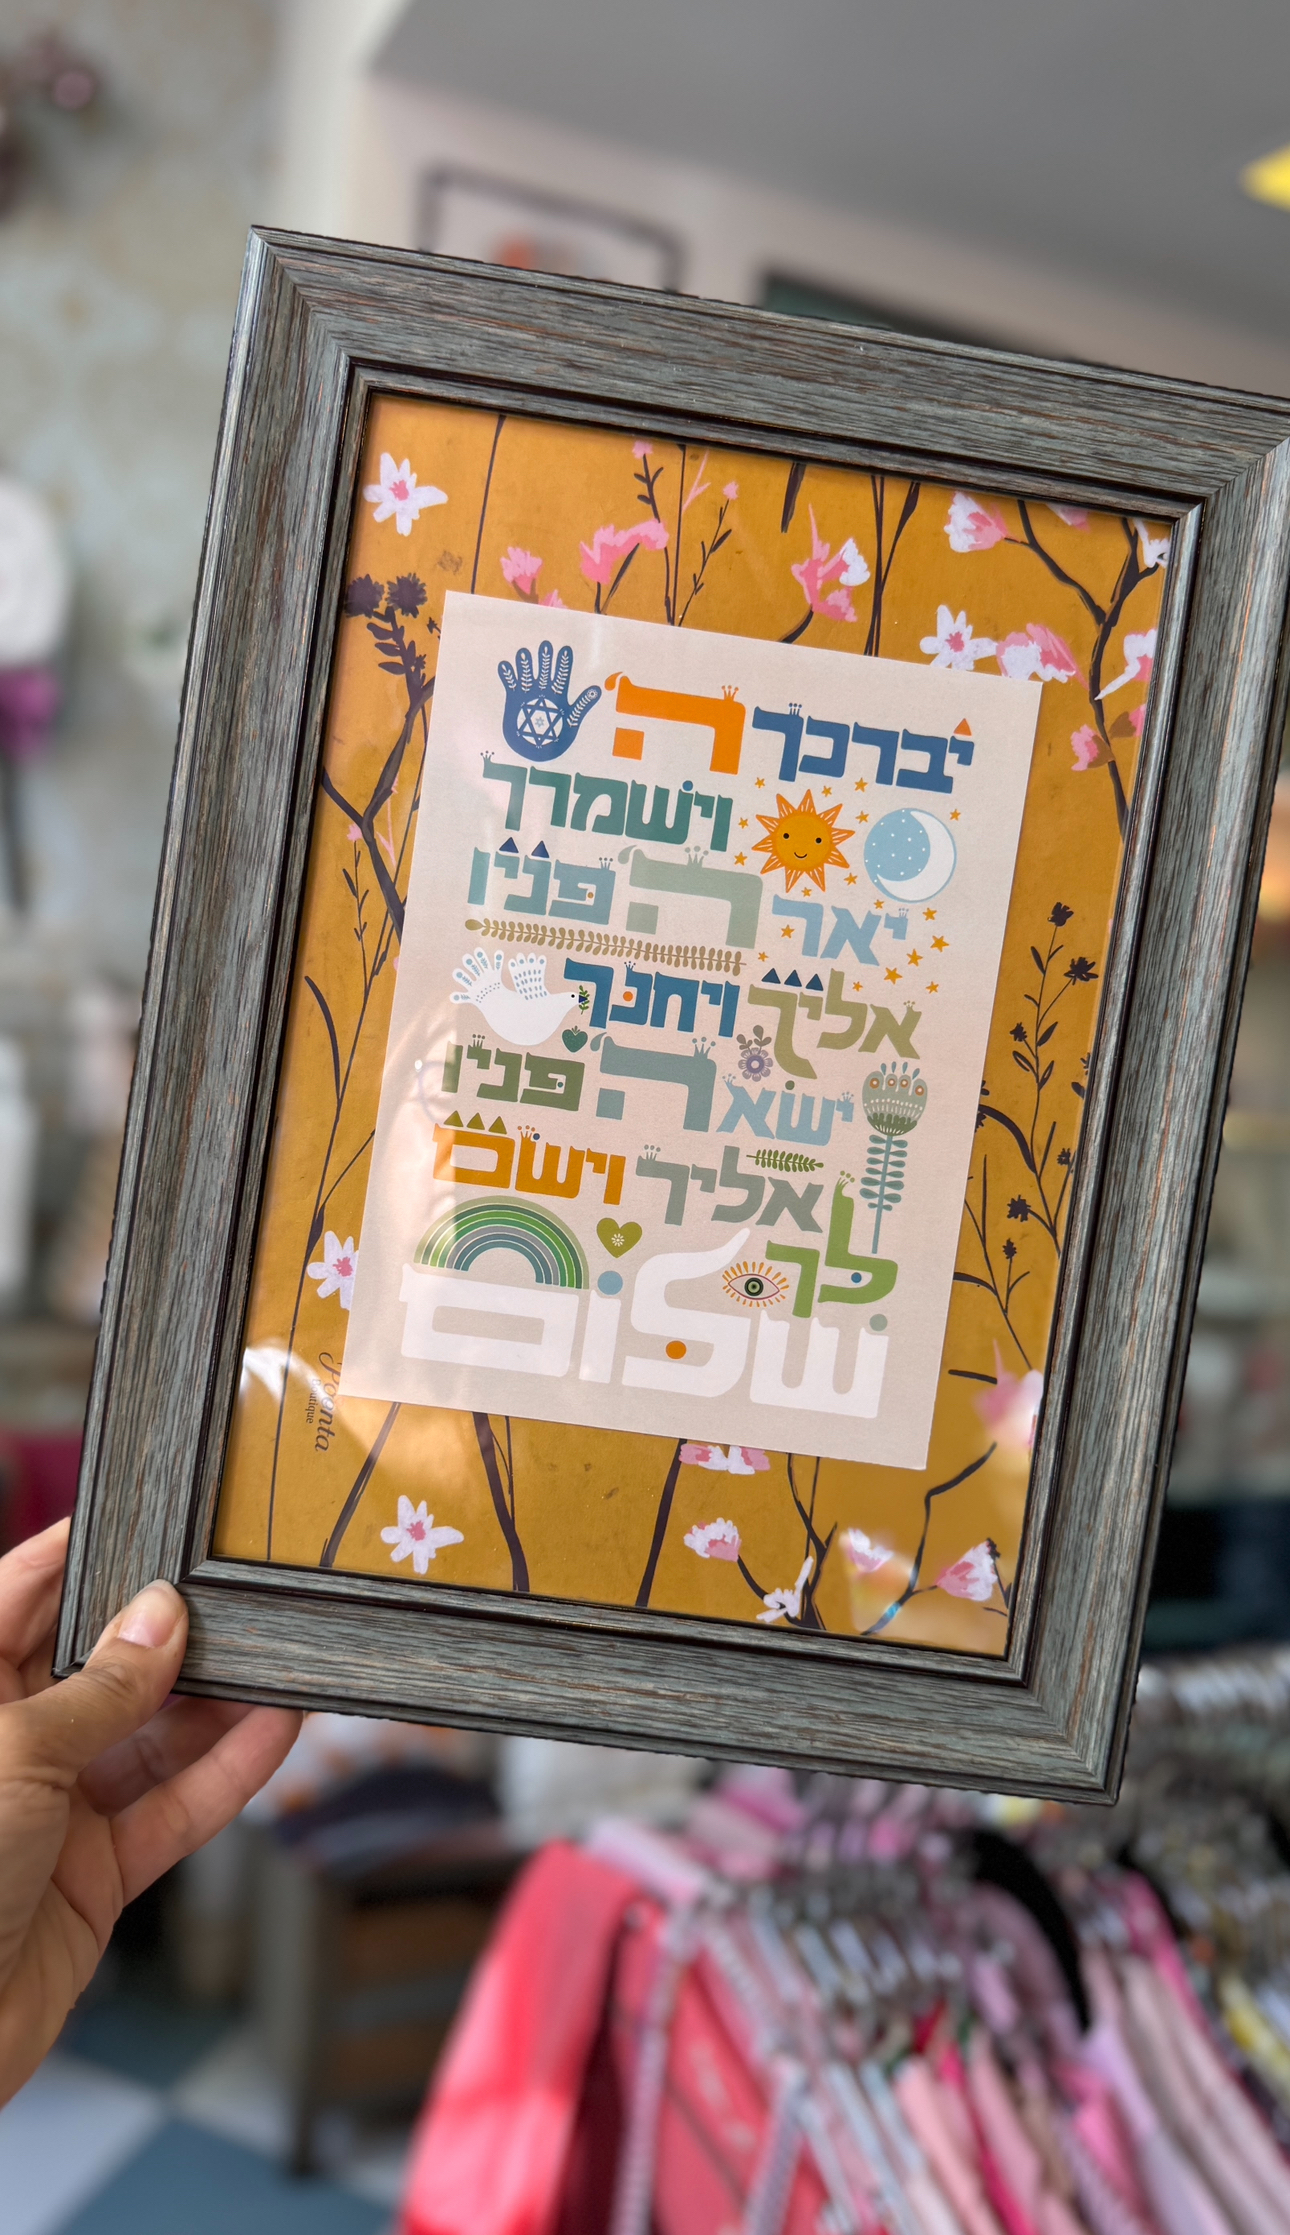 יברכך ה'
וישמרך
יאר ה' פניו
אליך ויחנך
ישא ה' פניו
אליך וישם
לך
שלום
boutique